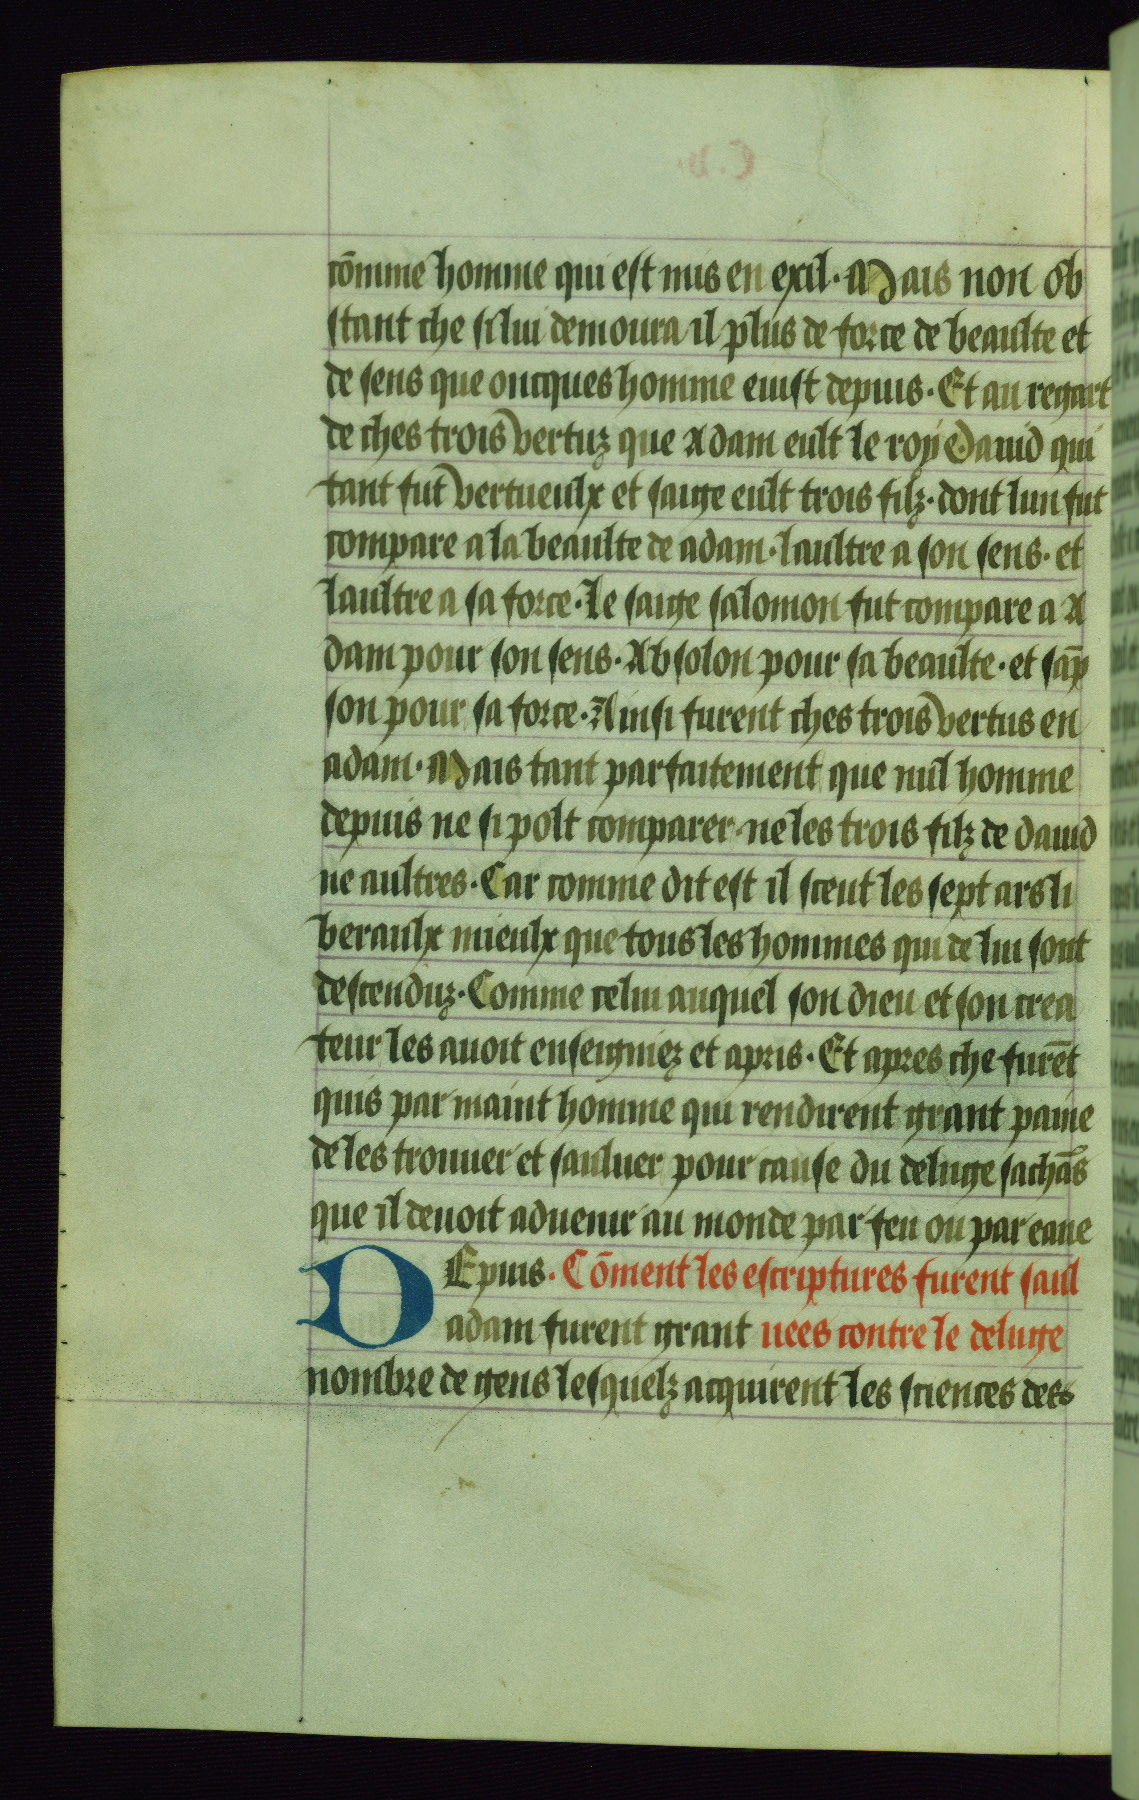 cōmme homme qui est mis en exil· Mais non ob
stant che si lui demoura il plus de force de beaulte et
de sens que oncques homme euist depuis· Et au regart
de ches trois vertuz que Adam eult le roy Dauid qui
tant fut vertueulx et saige eult trois filz· dont lun fut
compare a la beaulte de adam· laultre a son sens· et
laultre a sa force· le saige salomon fut compare a A
dam pour son sens· Absolon pour sa beaulte· et sāp
son pour sa force· Ainsi furent ches trois vertus en
adam· Mais tant parfaitement que nul homme
depuis ne si polt comparer· ne les trois filz de dauid
ne aultres· Car comme dit est il sceut les sept ars li
beraulx mieulx que tous les hommes qui de lui sont
descenduz· Comme celui auquel son dieu et son crea
teur les auoit enseigniez et apris· Et apres che furēt
quis par maint homme qui rendirent grant paine
de les trouuer et sauluer pour cause du deluge sachās
que il deuoit aduenir au monde par feu ou par eaue
DEpuis· Cōment les escriptures furent saul
adam furent grant uees contre le deluge
nombre de gens lesquelz acquirent les sciences des